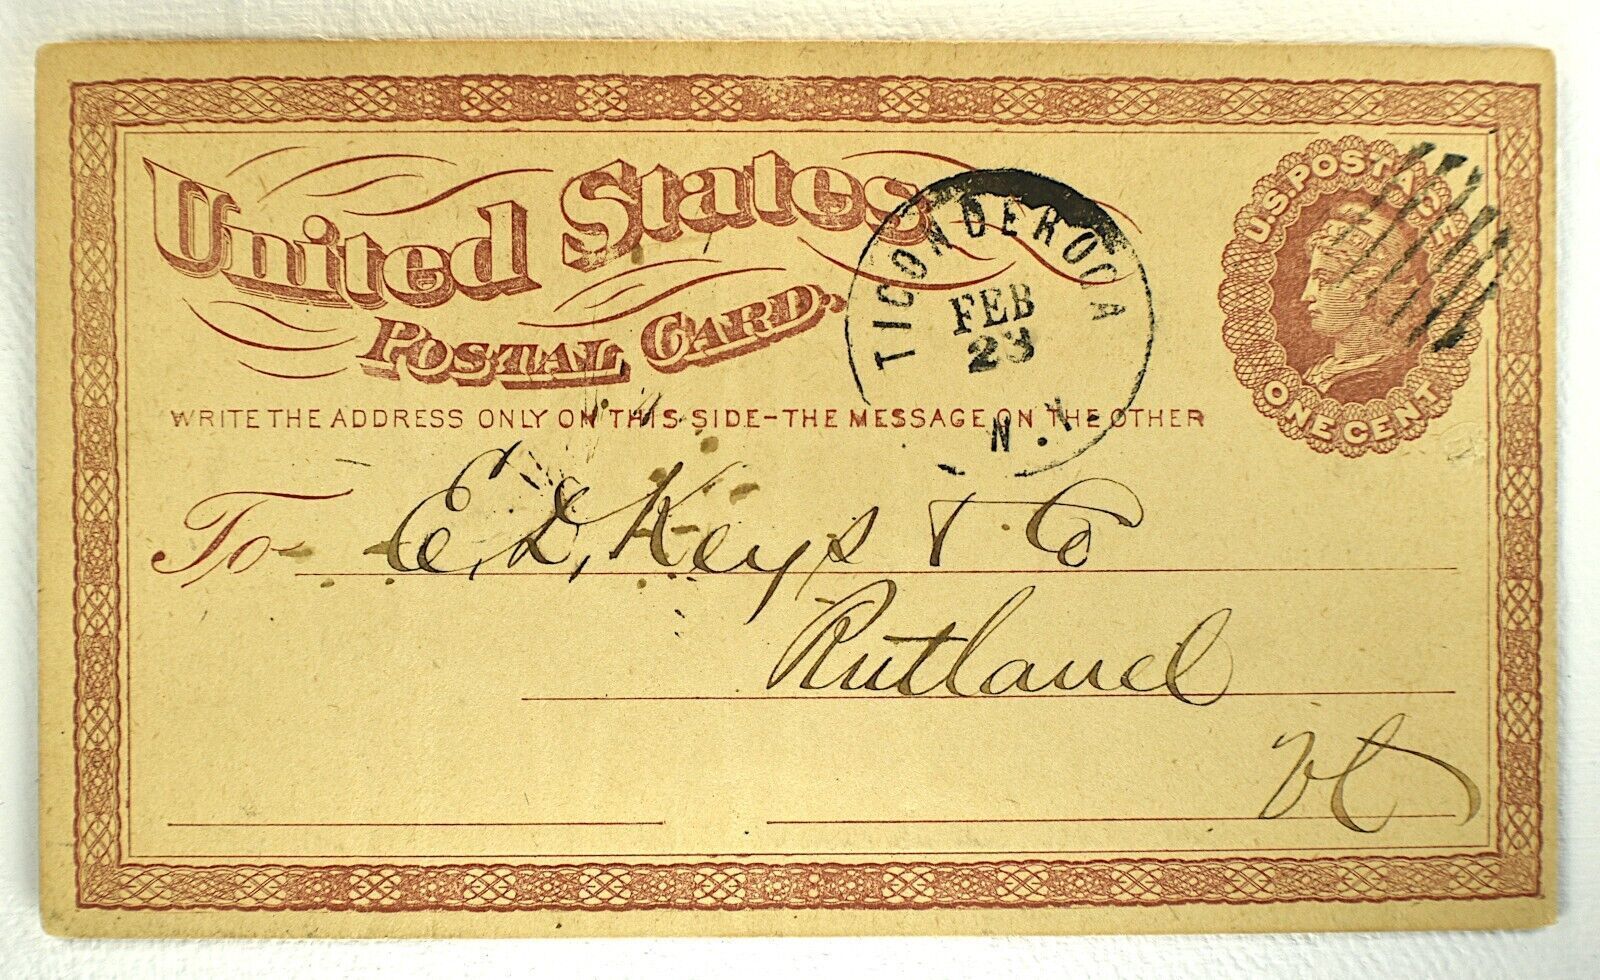 United States
POSTAL CARD.
U.S. POSTAGE
ONE CENT
TICONDEROGA
FEB
23
N.Y.
WRITE THE ADDRESS ONLY ON THIS SIDE-THE MESSAGE ON THE OTHER
To E. D. Keys & Co
Rutland
Vt